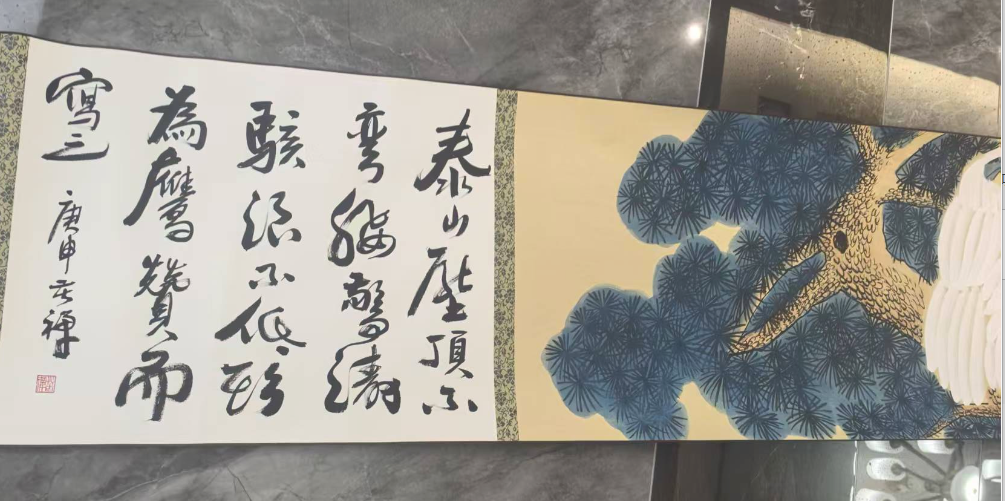 泰山壓頂不
弯腰驚濤
駭浪不低頭
為鷹贊而
寫之
庚申苦禪